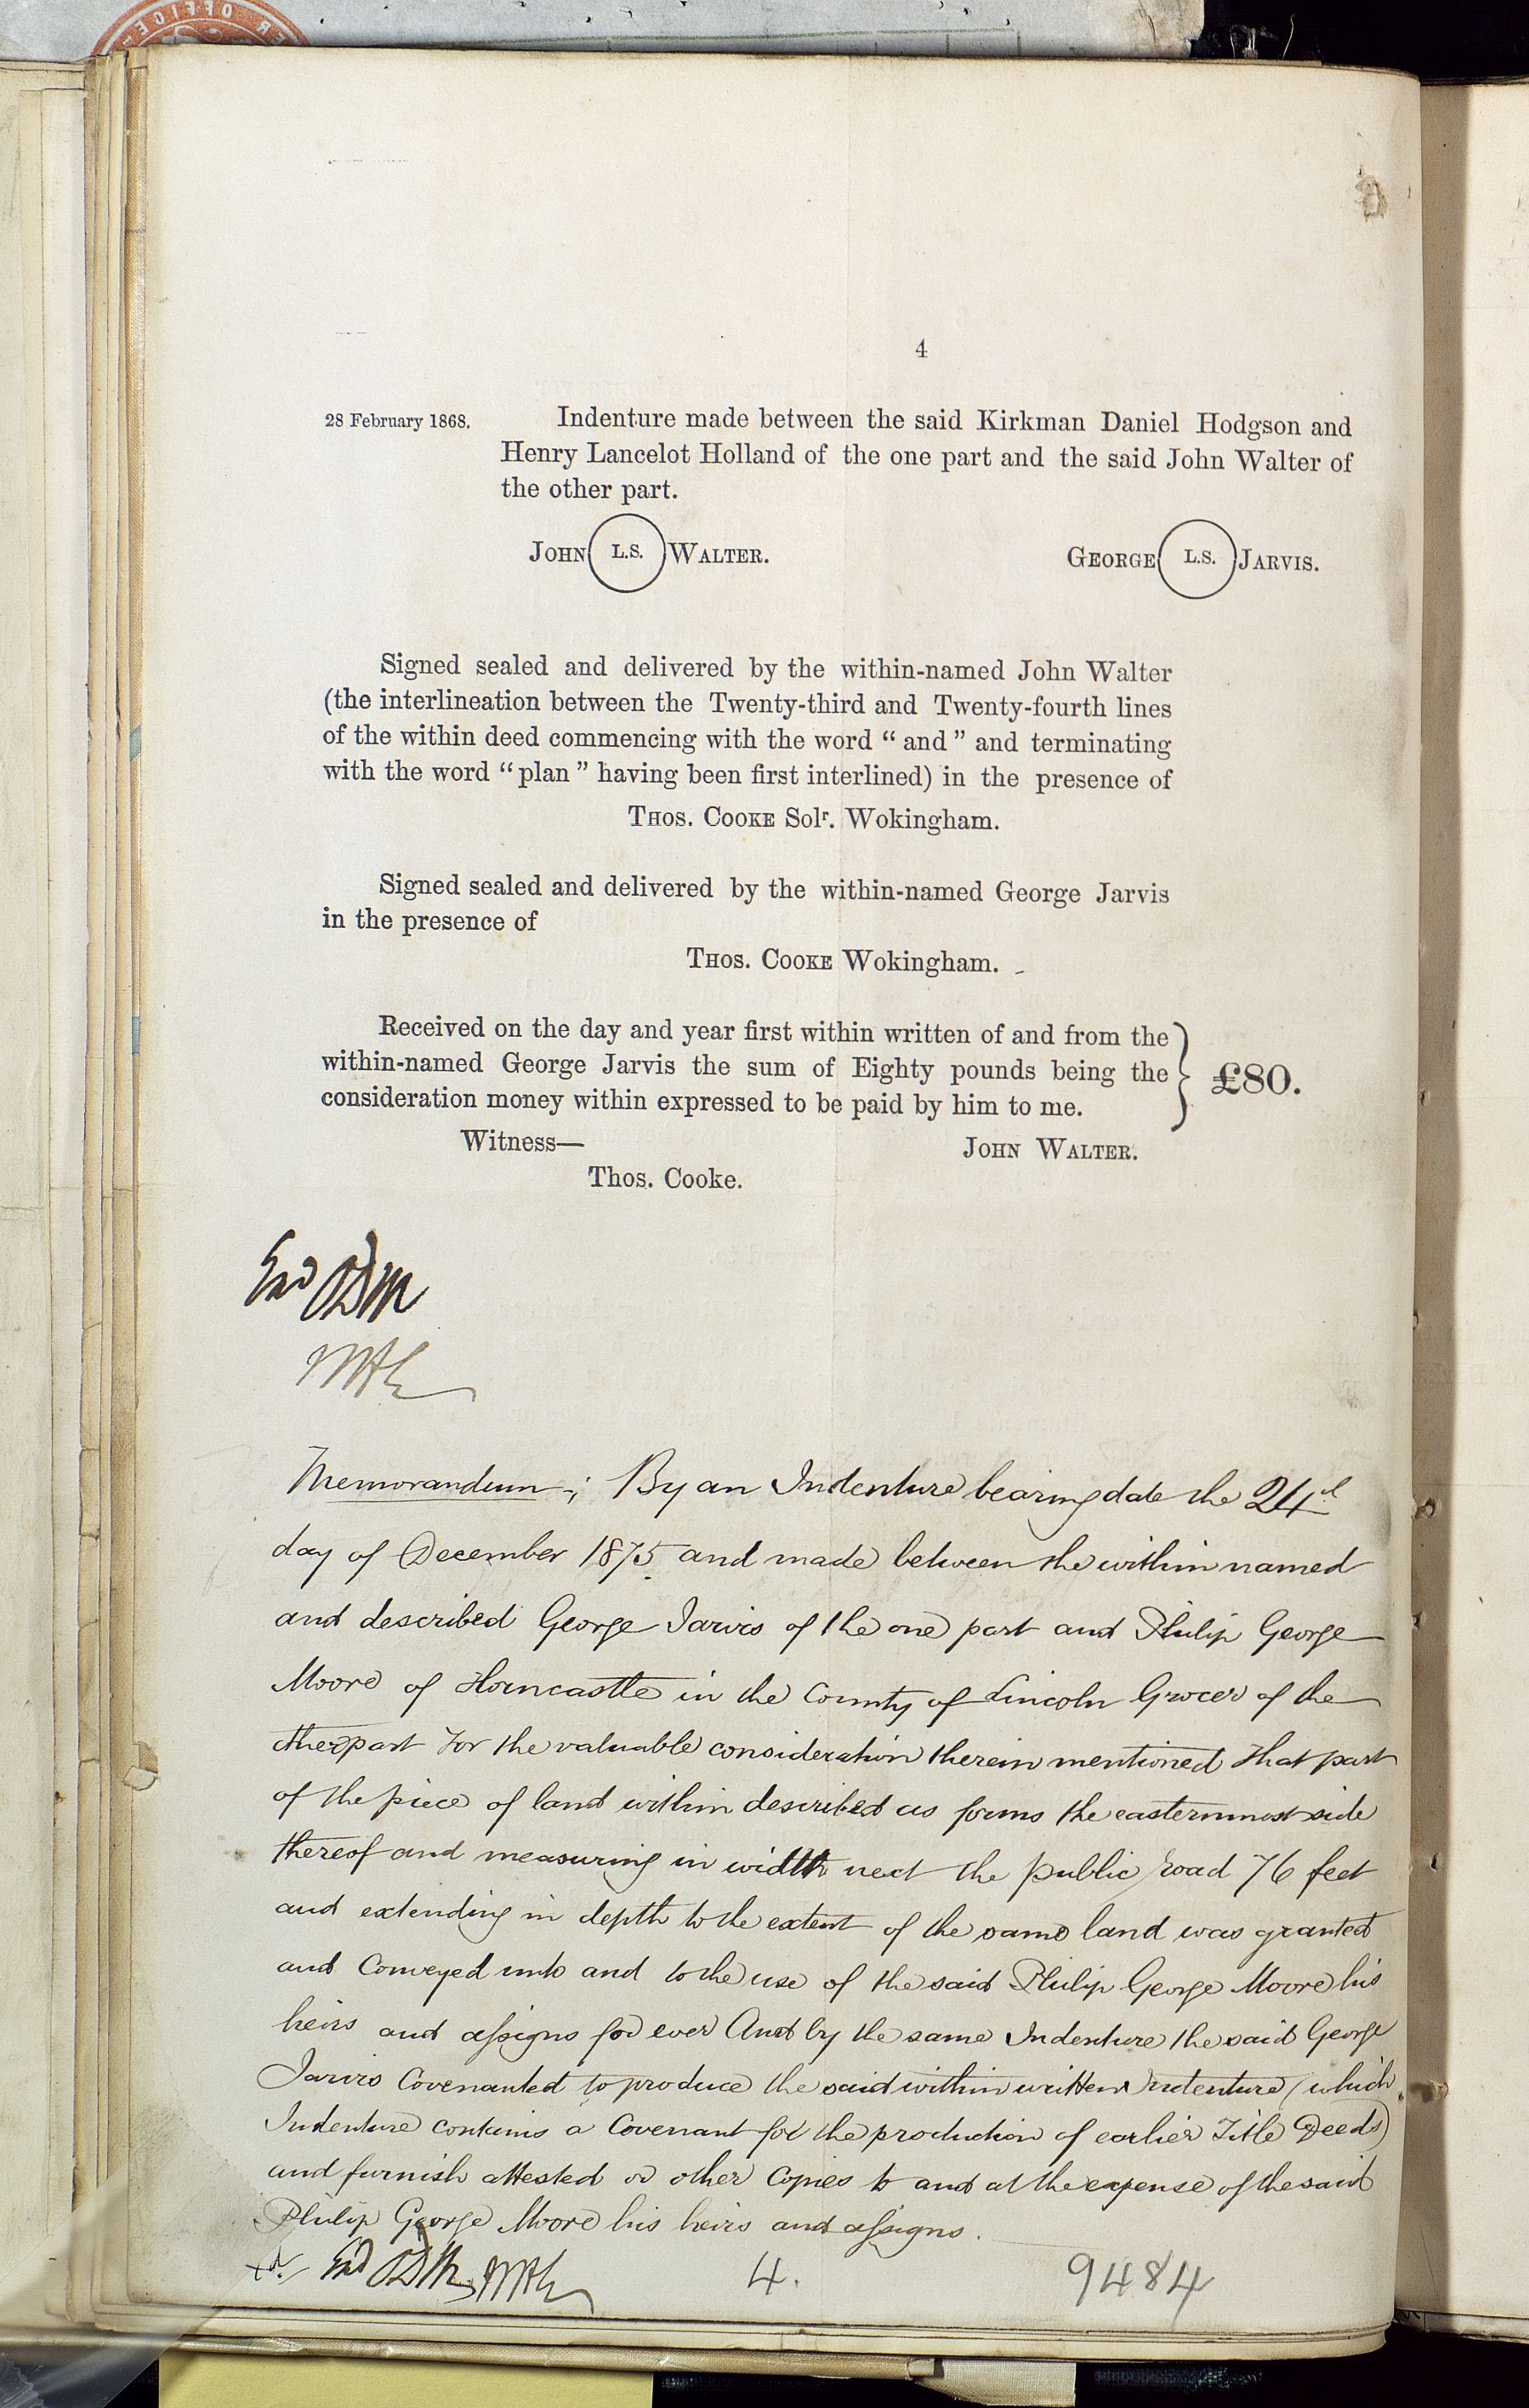 4
28 February 1868. Indenture made between the said Kirkman Daniel Hodgson and
Henry Lancelot Holland of the one part and the said John Walter of
the other part.
JOHN L.S. WALTER. GEORGE L.S. JARVIS.
Signed sealed and delivered by the within-named John Walter
(the interlineation between the Twenty-third and Twenty-fourth lines
of the within deed commencing with the word “ and ” and terminating
with the word “ plan ” having been first interlined) in the presence of
THOS. COOKE Solr. Wokingham.
Signed sealed and delivered by the within-named George Jarvis
in the presence of
THOS. COOKE Wokingham.
Received on the day and year first within written of and from the
within-named George Jarvis the sum of Eighty pounds being the
consideration money within expressed to be paid by him to me. £80.
Witness— JOHN WALTER.
Thos. Cooke.
Memorandum; By an Indenture bearing date the 24th
day of December 1875 and made between the within named
and described George Jarvis of the one part and Philip George
Moore of Horncastle in the County of Lincoln Grocer of the
other part For the valuable consideration therein mentioned that part
of the piece of land within described as forms the easternmost side
thereof and measuring in width next the public road 76 feet
and extending in depth to the extent of the same land was granted
and Conveyed unto and to the use of the said Philip George Moore his
heirs and assigns for ever And by the same Indenture the said George
Jarvis Covenanted to produce the said within written Indenture (which
Indenture contains a Covenant for the production of earlier Title Deeds)
and furnish attested or other Copies to and at the expense of the said
Philip George Moore his heirs and assigns.
4. 9484